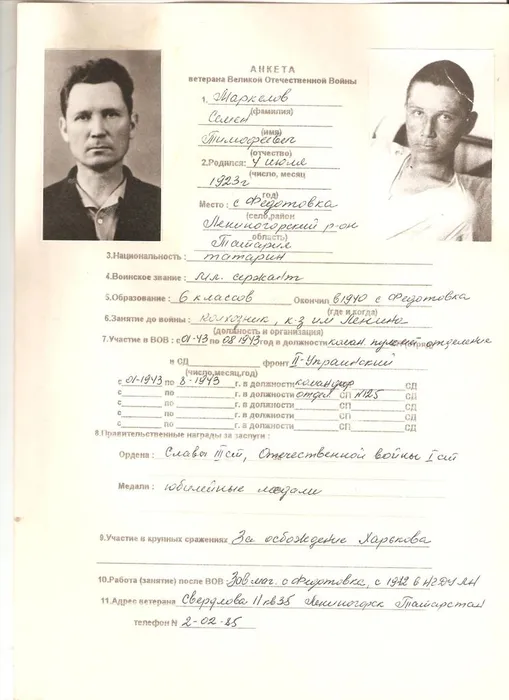 АНКЕТА
ветерана Великой Отечественной Войны
1. Маркелов
(фамилия)
Семен
(имя)
Тимофеевич
(отчество)
2.Родился: 4 июля
(число, месяц
1923г
год)
Место: с Федотовка
(село,район
Лениногорский р-он
область)
Татария
3.Национальность: татарин
4.Воинское звание: мл. сержант
5.Образование: 6 классов Окончил в 1940 с Федотовка
(где и когда)
6.Занятие до войны: колхозник, к-з им Ленина
(должность и организация)
7.Участие в ВОВ: с 01-43 по 08 1943 год в должности коман. отделение
в СД фронт II-Украинский
(число,месяц,год)
с 01-1943 по 8-1943 г. в должности командир СД
с по г. в должности отдел. СП №125 СД
с по г. в должности СД
с по г. в должности СД
с по г. в должности СД
8.Правительственные награды за заслуги:
Ордена: Славы III ст, Отечественной войны I ст
Медали: юбилейные медали
9.Участие в крупных сражениях За осбождение Харькова
10.Работа (занятие) после ВОВ: Зав маг. с Федотовка, с 1972 в НГДУ ЛН
11.Адрес ветерана Свердлова 11 кв 35 Лениногорск Татарстан
телефон N 2-02-85